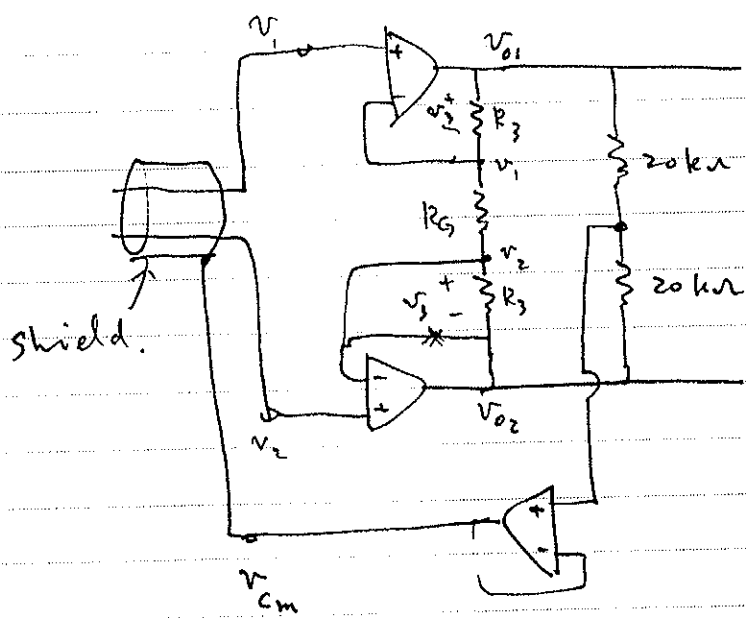 V₁
+
−
V₀₁
v₃
+
−
R₃
v₁
20kΩ
R_G
v₂
+
v₃
−
R₃
20kΩ
shield.
−
+
v₂
V₀₂
+
−
V_cm